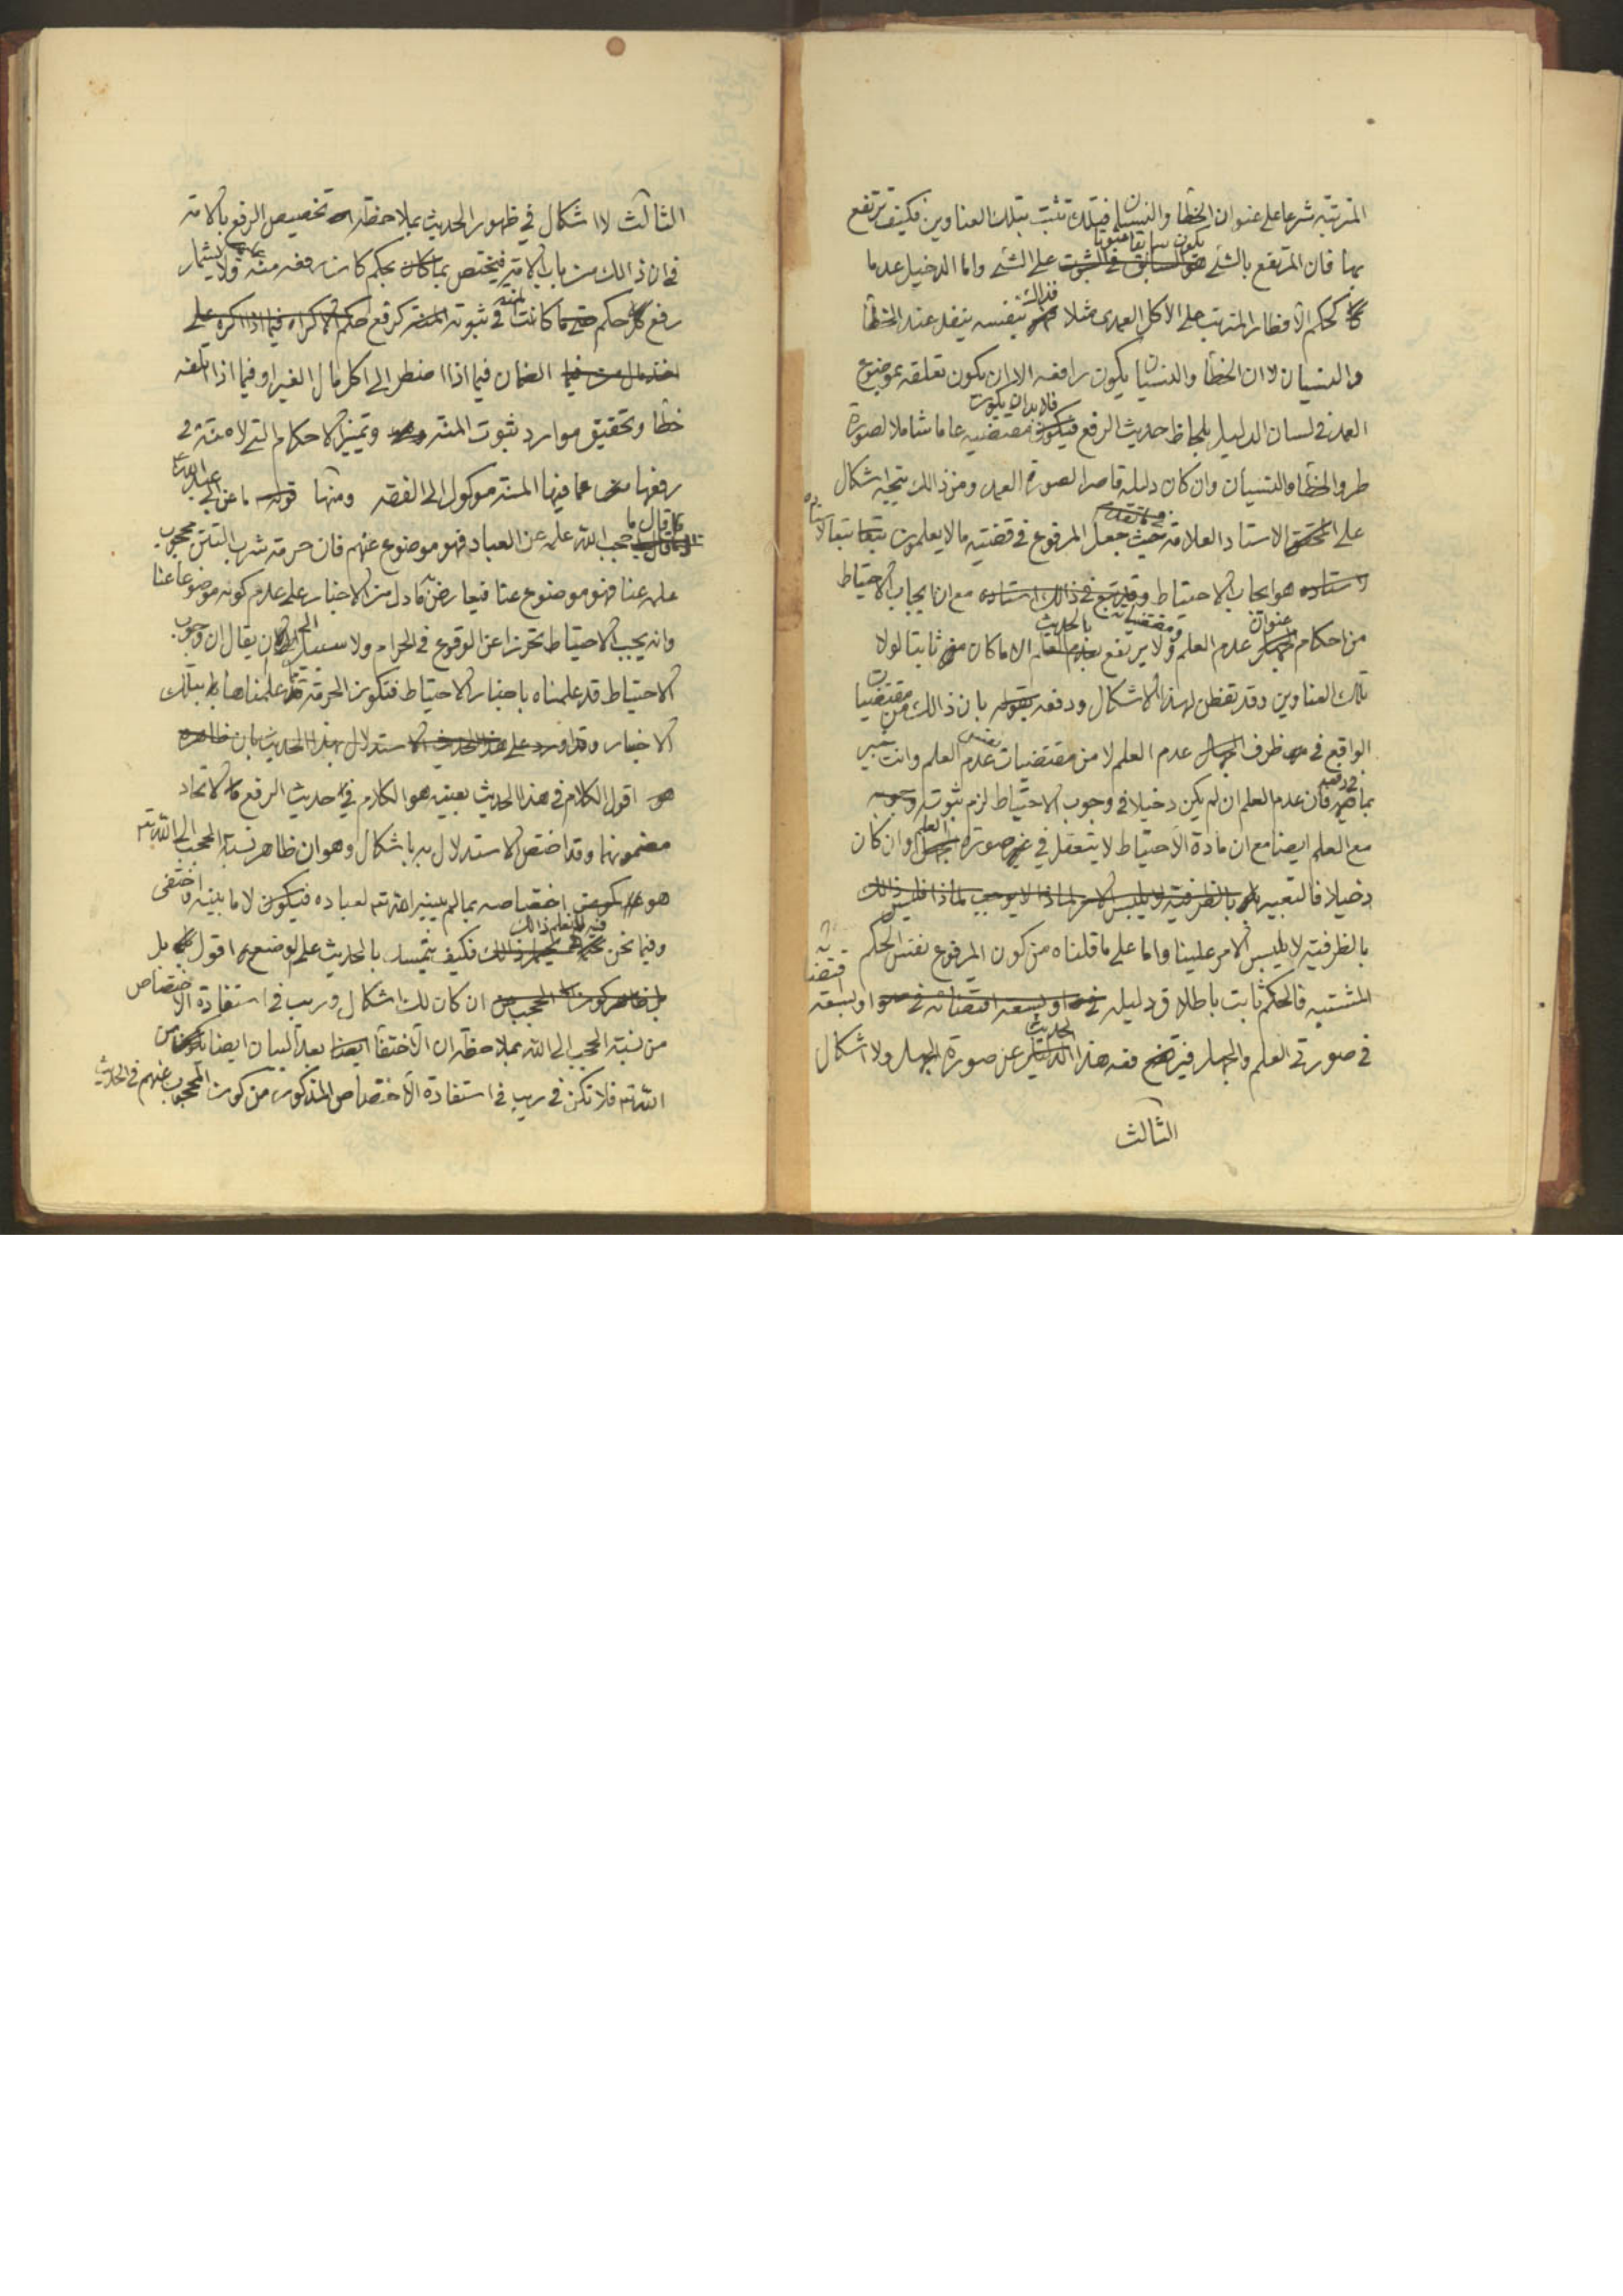 المترتبة شرعا على عنوان الخطأ والنسيان فتلك تثبت بتلك العناوين فكيف ترتفع
بها فان المرتفع بالشئ يكون سابقا ثبوتا على الشئ واما الدخيل عدمها
كحكم الافطار المترتب على الاكل العمدى مثلا فذاك بنفسه ينفد عند الخطأ
والنسيان لا ان الخطأ والنسيان يكون رافعه الا ان يكون تعلقه بموضوع
العمد فى لسان الدليل بلحاظ حديث الرفع فلابد ان يكون مقتضيه عاما شاملا لصورة
طرو الخطأ والنسيان وان كان دليله قاصرا لصورة العمد ومن ذالك يتجه اشكال
على الاستاد العلامة حيث جعل المرفوع فى قضية ما لا يعلمون تبعا لاستاده
هو ايجاب الاحتياط مع ان ايجاب الاحتياط
من احكام عنوان عدم العلم ومقتضياته ولا يرتفع بالحديث الا ما كان ثابتا لولا
تلك العناوين وقد تفطن لهذا الاشكال ودفعه بقوله بان ذالك من مقتضيات
الواقع فى ظرف عدم العلم لا من مقتضيات نفس عدم العلم وانت خبير
بما فى دفعه فان عدم العلم ان لم يكن دخيلا فى وجوب الاحتياط لزم ثبوت وجوبه
مع العلم ايضا مع ان مادة الاحتياط لا يتعقل فى غير صورة عدم العلم وان كان
دخيلا فالتعبير
بالظرفية لا يلبس الامر علينا واما على ما قلناه من كون المرفوع نفس الحكم
المشتبه فالحكم ثابت باطلاق دليله او بسعة اقتضائه
فى صورتى العلم والجهل فيرتفع هذا الحديث عن صورة الجهل ولا اشكال
الثالث
الثالث لا اشكال فى ظهور الحديث بملاحظة تخصيص الرفع بالامة
فى ان ذالك من باب الامتنان فيختص بحكم كان رفعه منة ولا يشمل
رفع كل حكم كانت المنة فى ثبوته كرفع
الضمان فيما اذا اضطر الى اكل مال الغير او فيما اذا اتلفه
خطأ وتحقيق موارد ثبوت المنة وتميز الاحكام التى لا منة فى
رفعها عما فيها المنة موكول الى الفقه ومنها قوله ما عن ابى عبد الله ع
كما قال ما حجب الله علمه عن العباد فهو موضوع عنهم فان حرمة شرب التتن محجوب
علمه عنا فهو موضوع عنا فيعارض ما دل من الاخبار على عدم كونه موضوعا عنا
وانه يجب الاحتياط تحرزا عن الوقوع فى الحرام ولا سبيل الى ان يقال ان وجوب
الاحتياط قد علمناه باخبار الاحتياط فتكون الحرمة مما علمناها بتلك
الاخبار
اقول الكلام فى هذا الحديث بعينه هو الكلام فى حديث الرفع لاتحاد
مضمونهما وقد اختص الاستدلال به باشكال وهو ان ظاهر نسبة الحجب الى الله تع
هو اختصاصه بما لم يبينه الله تع لعباده لا ما بينه واختفى
وفيما نحن فيه لا نعلم ذالك فكيف يتمسك بالحديث على الوضع اقول بل
ان كان لك اشكال وريب فى استفادة الاختصاص
من نسبة الحجب الى الله بملاحظة ان الاختفاء بعد البيان ايضا يكون من
الله تع فلا تكن فى ريب فى استفادة الاختصاص المذكور من كون المحجوب عنهم فى الحديث